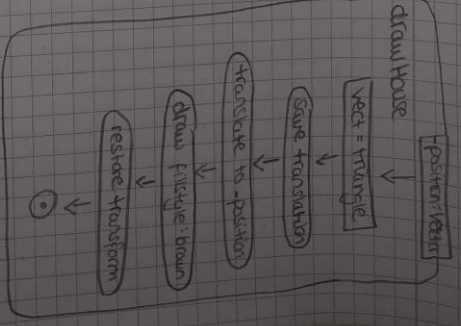 drawHouse
-position:Vector
vect = triangle
save translation
translate to -position
draw fillstyle: brown
restore transform